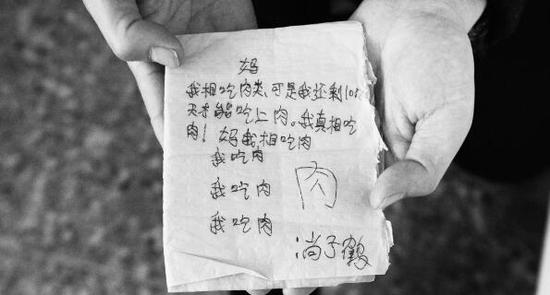 妈
我相吃肉类,可是我还剩
天才能吃上肉。我真相吃
肉!妈我相吃肉
我吃肉
我吃肉
肉
我吃肉
淌子鹤